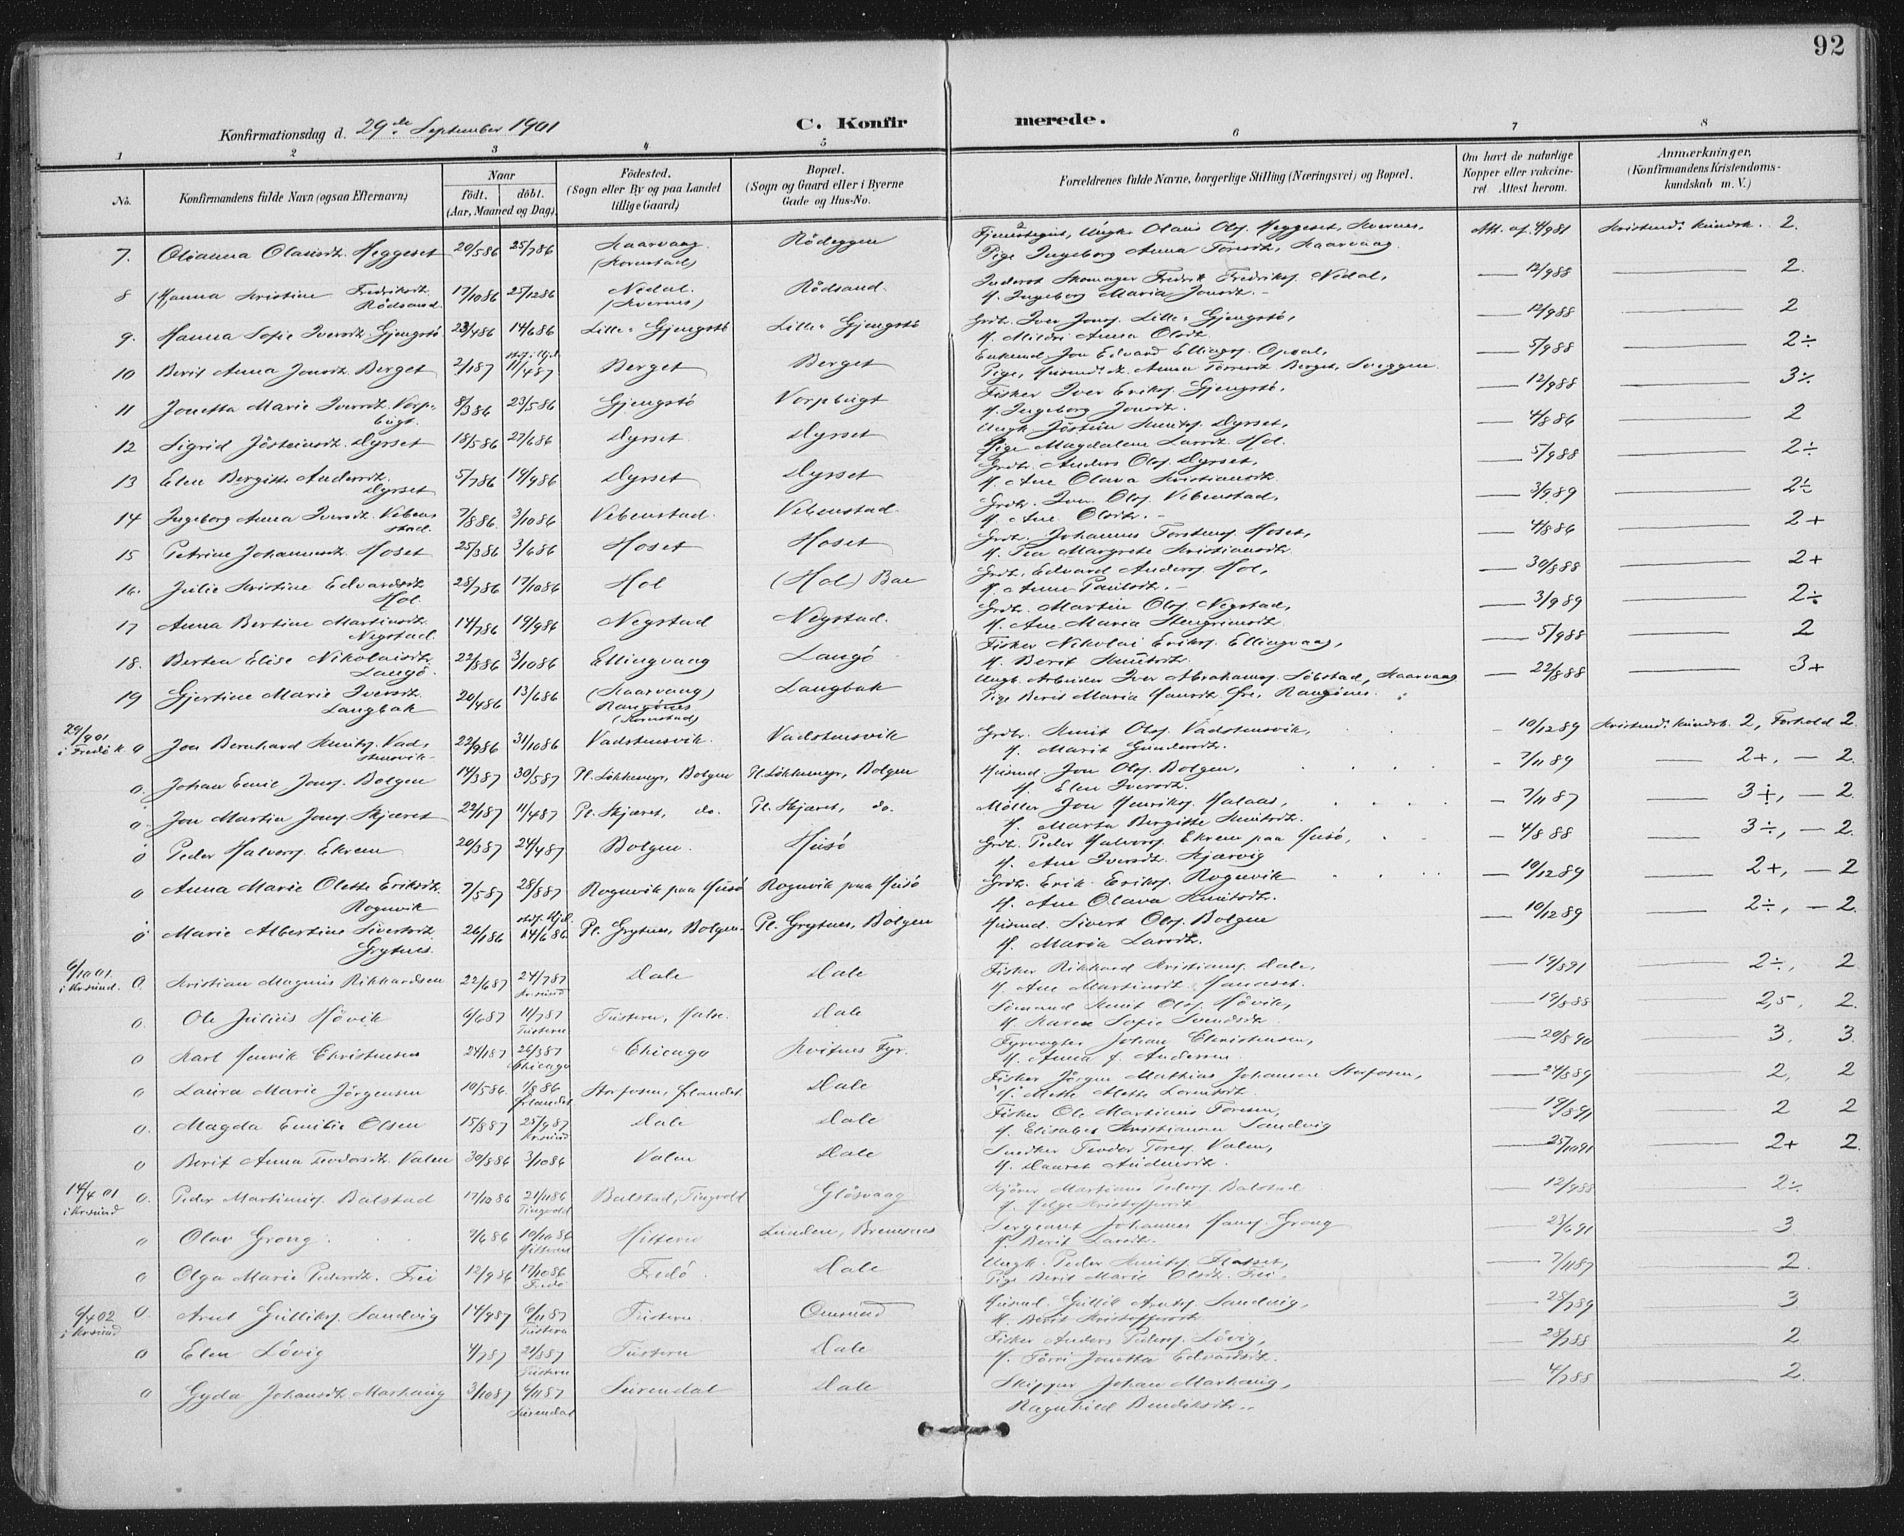 92
Konfirmationsdag d. 29de September 1901 C. Konfirmerede.
1 2 3 4 5 6 7 8
No. Konfirmandens fulde Navn (ogsaa Efternavn) Naar født. døbt. (Aar, Maaned og Dag) Födested. (Sogn eller By og paa Landet tillige Gaard) Bopæl. (Sogn og Gaard eller i Byerne Gade og Hus-No. Forældrenes fulde Navne, borgerlige Stilling (Næringsvei) og Bopæl. Om havt de naturlige Kopper eller vakcineret Attest herom. Anmærkninger. (Konfirmandens Kristendomskundskab m. V.)
7. Olianna Olausdt. Heggeset 20/5 86 25/7 86 Kaarvaag (Kornstad) Rödeggen Ungk. Olaus Olsf. Heggeset, Kvernes, Pige Ingeborg Anna Toresdt. Kaarvaag Att. af 4/9 81 Kristend. kundsk. 2.
8 Hanna Kristine Fredriksdt. Rödsand 17/10 86 25/12 86 Nedal. (Kvernes) Rödsand. Inderst Skomager Fredrik Fredriksf. Nedal, H. Ingeborg Maria Jonsdt. 12/9 88 2.
9. Hanna Sofie Iversdt. Gjengstö 23/4 86 14/6 86 Lille-Gjengstö Lille-Gjengstö Grdbr. Iver Jonsf. Lille-Gjengstö, H. Mildri Anna Olsdt. 12/9 88 2
10 Berit Anna Jonsdt. Berget 2/1 87 11/4 87 Berget Berget Enkemd. Jon Edvard Ellingsf. Opsal, Pige, Anna Toresdt. Berget, Sveggen 5/9 88 2÷
11 Jonetta Marie Iversdt. Vorpbugt. 8/3 86 23/5 86 Gjengstö Vorpbugt Fisker Iver Eriksf. Gjengstö, H. Ingeborg Jonsdt. 12/9 88 3÷
12 Sigrid Jösteinsdt. Dyrset 18/5 86 27/6 86 Dyrset Dyrset Ungk. Jöstein Knutsf. Dyrset, Pige Magdalena Larsdt. Hol. 4/8 86 2
13 Elen Bergitte Andersdt. Dyrset 5/7 86 19/9 86 Dyrset Dyrset Grdbr. Anders Olsf. Dyrset, H. Ane Olava Kristiansdt. 5/9 88 2÷
14 Ingeborg Anna Iversdt. Vebenstad. 7/8 86 3/10 86 Vebenstad. Vebenstad. Grdbr. Iver Olsf. Vebenstad, H. Ane Olsdt. 3/9 89 2÷
15 Petrine Johannesdt. Hoset 25/3 86 3/6 86 Hoset Hoset Grdbr. Johannes Torstensf. Hoset, H. Pea Margrete Kristiansdt. 4/8 86 2+
16. Julie Kristine Edvardsdt. Hol. 28/7 86 17/10 86 Hol (Hol) Bae Grdbr. Edvard Andersf. Hol, H. Anne Paulsdt. 30/8 88 2+
17 Anna Bertine Martinsdt. Negstad 14/7 86 19/9 86 Negstad Negstad. Grdbr. Martin Olsf. Negstad, H. Ane Maria Stengrimsdt. 3/9 89 2÷
18. Bertea Elise Nikolaisdt. Langö. 22/8 86 3/10 86 Ellingvaag Langö Fisker Nikolai Eriksf. Ellingvaag, H. Berit Knutsdt. 5/9 88 2
19 Gjertine Marie Iversdt. Langbak 20/4 86 13/6 86 (Kaarvaag) Rangönes (Kornstad) Langbak Ungk. Arbeider Iver Abrahamsf. Söbstad, Kaarvaag Pige Berit Maria Hansdt. Rangönes 22/8 88 3+
29/9 01 i Fredö K 0 Jon Bernhard Knutsf. Vadstensvik 22/9 86 31/10 86 Vadstensvik. Vadstensvik Grdbr. Knut Olsf. Vadstensvik, H. Marit Gundersdt. 10/12 89 Kristend. kundsk. 2, Forhold 2.
0. Johan Emil Jonsf. Bolgen 14/3 87 30/5 87 Pl. Lökkemyr, Bolgen Pl. Lökkemyr, Bolgen Husmd. Jon Olsf. Bolgen, H. Elen Iversdt. 7/11 89 2+, — 2.
0. Jon Martin Jonsf. Skjæret 22/1 87 11/4 87 Pl. Skjæret, do. Pl. Skjæret, do. Möller Jon Henriksf. Halaas, H. Marta Bergitte Knutsdt. 7/11 87 3÷, — 2.
0 Peder Halvorsf. Ekrem 20/3 87 24/4 87 Bolgen. Husö Grdbr. Peder Halvorsf. Ekrem paa Husö, H. Ane Iversdt. Kjærvig 4/8 88 3÷, — 2.
0 Anna Marie Olette Eriksdt. Rognvik 7/5 87 28/8 87 Rognvik paa Husö Rognvik paa Husö Grdbr. Erik Eriksf. Rognvik H. Ane Olava Knutsdt. 10/12 89 2+, — 2
0 Marie Albertine Sivertsdt. Grytnes. 26/1 86 14/6 86. Pl. Grytnes, Bolgen. Pl. Grytnes, Bolgen Husmd. Sivert Olsf. Bolgen H. Maria Larsdt. 10/12 89 2÷, — 2.
6/10 01 i Kr.sund. 0. Kristian Magnus Rikkardsen 22/6 87 24/7 87 Kr.sund Dale Dale Fisker Rikkard Kristiansf. Dale, H. Ane Martinsdt. Hanaset. 19/8 91 2÷, 2
0. Ole Julius Hövik 6/6 87 11/7 87 Tustern Tustern, Halse. Dale Sömand Knut Olsf. Hövik, H. Karen Sofie Svendsdt. 19/8 88 2,5. 2.
0 Karl Henrik Christensen 24/1 87 26/3 87 Chicago Chicago Kvitnes Fyr. Fyrvogter Johan Christensen, H. Anna f. Andersen. 20/8 90 3. 3.
0 Laura Marie Jörgensen 10/5 86 1/8 86 Ørlandet Storfosen, Ørlandet. Dale Fisker Jörgen Mathias Johansen Storfosen, H. Mette Lorentsdt. 24/8 89 2, 2
0. Magda Emilie Olsen 15/8 87 25/9 87 Kr.sund Dale Dale Fisker Ole Martinus Toresen, H. Elisabet Kristianna Sandvig 19/8 91 2 2
0 Berit Anna Teodorsdt. Valen 30/8 86 3/10 86 Valen Dale Snedker Teodor Toresf. Valen, H. Lauret Andersdt. 25/10 91 2+ 2.
14/4 01 i Kr.sund 0. Peder Martinusf. Balstad 17/10 86 21/11 86 Tingvold Balstad, Tingvold Glösvaag Kjörer Martinus Pedersf. Balstad H. Helge Kristoffersdt. 12/9 88 2÷
0 Olav Grong. 9/6 86 10/10 86 Hittern Hittern Lunden, Bremsnes Sergeant Johannes Hansf. Grong H. Berit Larsdt. 23/6 91 3
0 Olga Marie Pedersdt. Frei 12/9 86 17/10 86 Fredö Fredö. Dale Ungk. Peder Knutsf. Flatset, Pige Berit Marie Olsdt. Frei, 7/11 87 2.
6/4 02 i Kr.sund 0. Arnt Gulliksf. Sandvig 14/9 87 6/11 87 Tustern Tustern. Omsund Husmd. Gullik Arntsf. Sandvig, H. Berit Kristoffersdt. 28/7 89 3
0 Elen Lövig 4/7 87 21/8 87 Tustern Tustern Dale Fisker Anders Pedersf. Lövig, H. Törri Jonetta Edvardsdt. 28/7 88 2
0 Gyda Johansdt. Marhaug 3/10 87 6/11 87 Surendal Surendal Dale Skipper Johan Marhaug, Ragnhild Bendiksdt. 4/7 88 2.